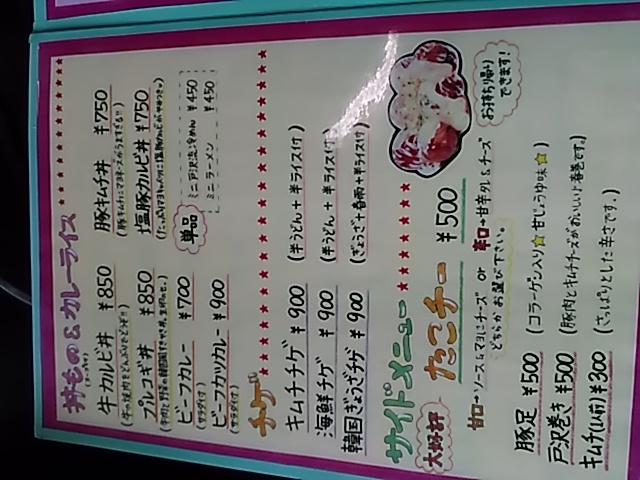 丼もの&カレーライス
(スープ付)
牛カルビ丼 ¥850
(牛の焼肉をどんぶりでどうぞ!)
プルコギ丼 ¥850
ビーフカレー ¥700
(サラダ付)
ビーフカツカレー ¥900
(サラダ付)
豚キムチ丼 ¥750
(豚キムチにマヨネーズがうますぎる!!)
塩豚カルビ丼 ¥750
単品
ミニ戸沢流冷めん ¥450
ミニラーメン ¥450
チゲ
キムチチゲ ¥900 (半うどん+半ライス付)
海鮮チゲ ¥900 (半うどん+半ライス付)
韓国ぎょうざチゲ ¥900 (ぎょうざ+春雨+半ライス付)
サイドメニュー
大好評
たこチー ¥500
お持ち帰りできます!
甘口→ソース&マヨにチーズ or 辛口→甘辛タレ&チーズ
どちらかお選び下さい。
豚足 ¥500 (コラーゲン入り☆甘じょうゆ味☆)
戸沢巻き ¥500 (豚肉とキムチチーズがおいしい春巻です。)
キムチ(1人前) ¥300 (さっぱりとした辛さです。)